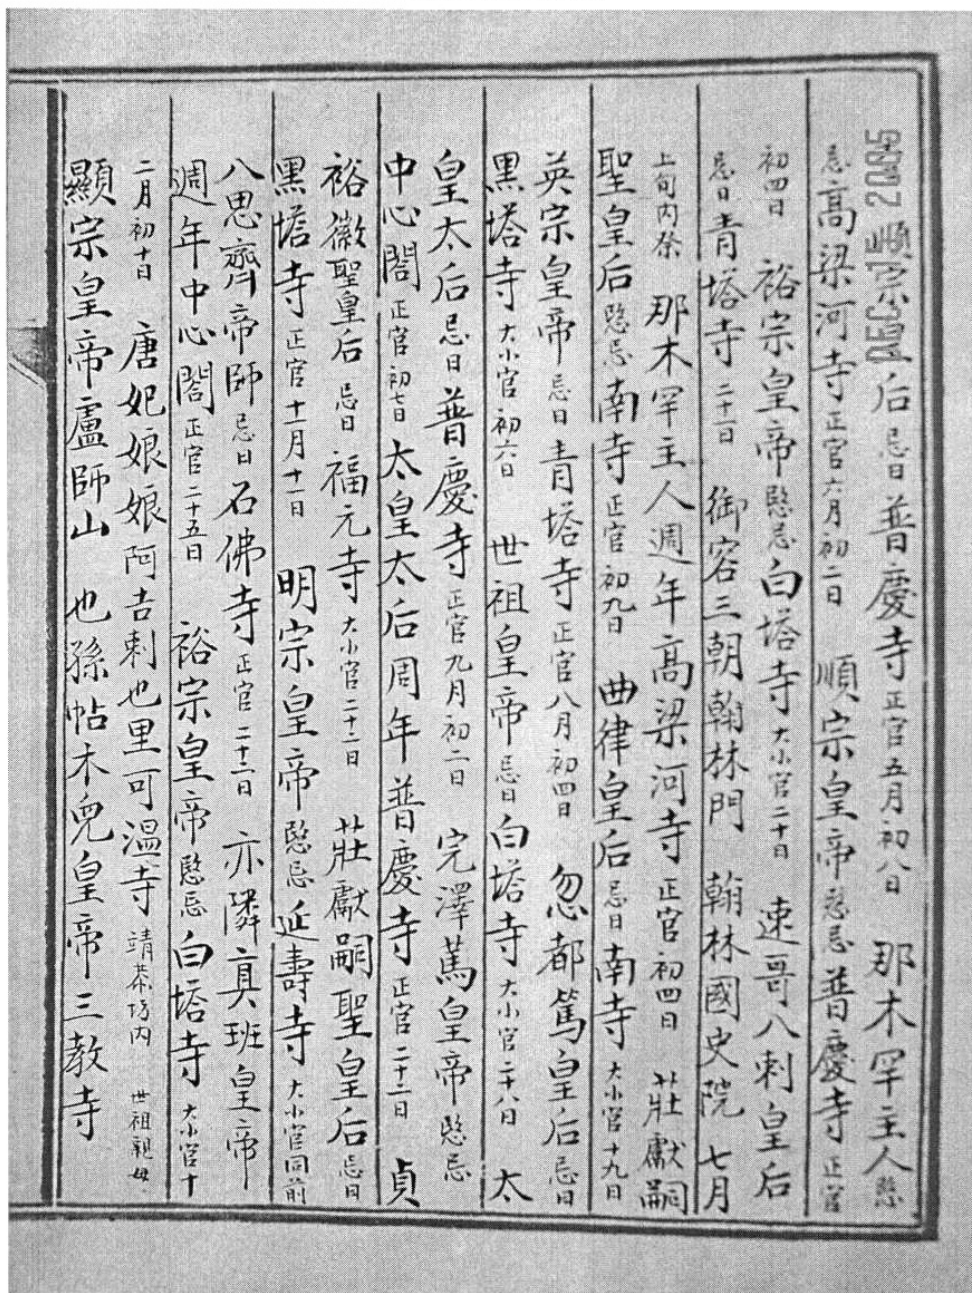 順宗皇后忌日普慶寺正官五月初八日 那木罕主人愍
忌高梁河寺正官六月初二日 順宗皇帝愍忌普慶寺正官
初四日 裕宗皇帝愍忌白塔寺大小官二十日 速哥八剌皇后
忌日青塔寺二十一日 御容三朝翰林門 翰林國史院 七月
上旬内祭 那木罕主人週年高梁河寺正官初四日 莊獻嗣
聖皇后愍忌南寺正官初九日 曲律皇后忌日南寺大小官十九日
英宗皇帝忌日青塔寺正官八月初四日 忽都篤皇后忌日
黑塔寺大小官初六日 世祖皇帝忌日白塔寺大小官二十八日 太
皇太后忌日普慶寺正官九月初二日 完澤篤皇帝愍忌
中心閣正官初七日 太皇太后周年普慶寺正官二十二日 貞
裕徽聖皇后忌日福元寺大小官二十二日 莊獻嗣聖皇后忌日
黑塔寺正官十一月十一日 明宗皇帝愍忌延壽寺大小官同前
八思齊帝師忌日石佛寺正官二十二日 亦隣真班皇帝
週年中心閣正官二十五日 裕宗皇帝愍忌白塔寺大小官十
二月初十日 唐妃娘娘阿吉剌也里可溫寺靖恭坊内 世祖親母
顯宗皇帝盧師山 也孫帖木兒皇帝三教寺
DEC 15 2005